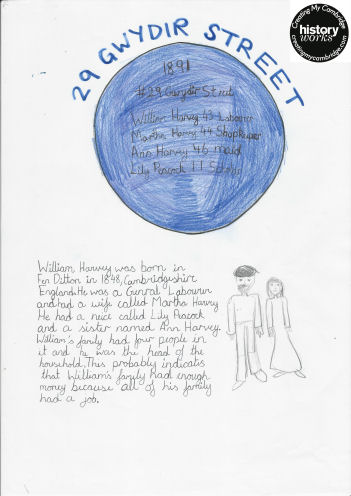 Creating My Cambridge
history
works
creatingmycambridge.com
29 GWYDIR STREET
1891
#29 Gwydir Street
William Harvey 43 Labourer
Martha Harvey 44 Shopkeeper
Ann Harvey 46 maid
Lily Peacock 11 School
William Harvey was born in
Fen Ditton in 1848, Cambridgeshire
England. He was a Genral Labourer
and had a wife called Martha Harvey
He had a neice called Lily Peacock
and a sister named Ann Harvey.
William's family had four people in
it and he was the head of the
household. This probably indicatis
that William's family had enough
money because all of his family
had a job.